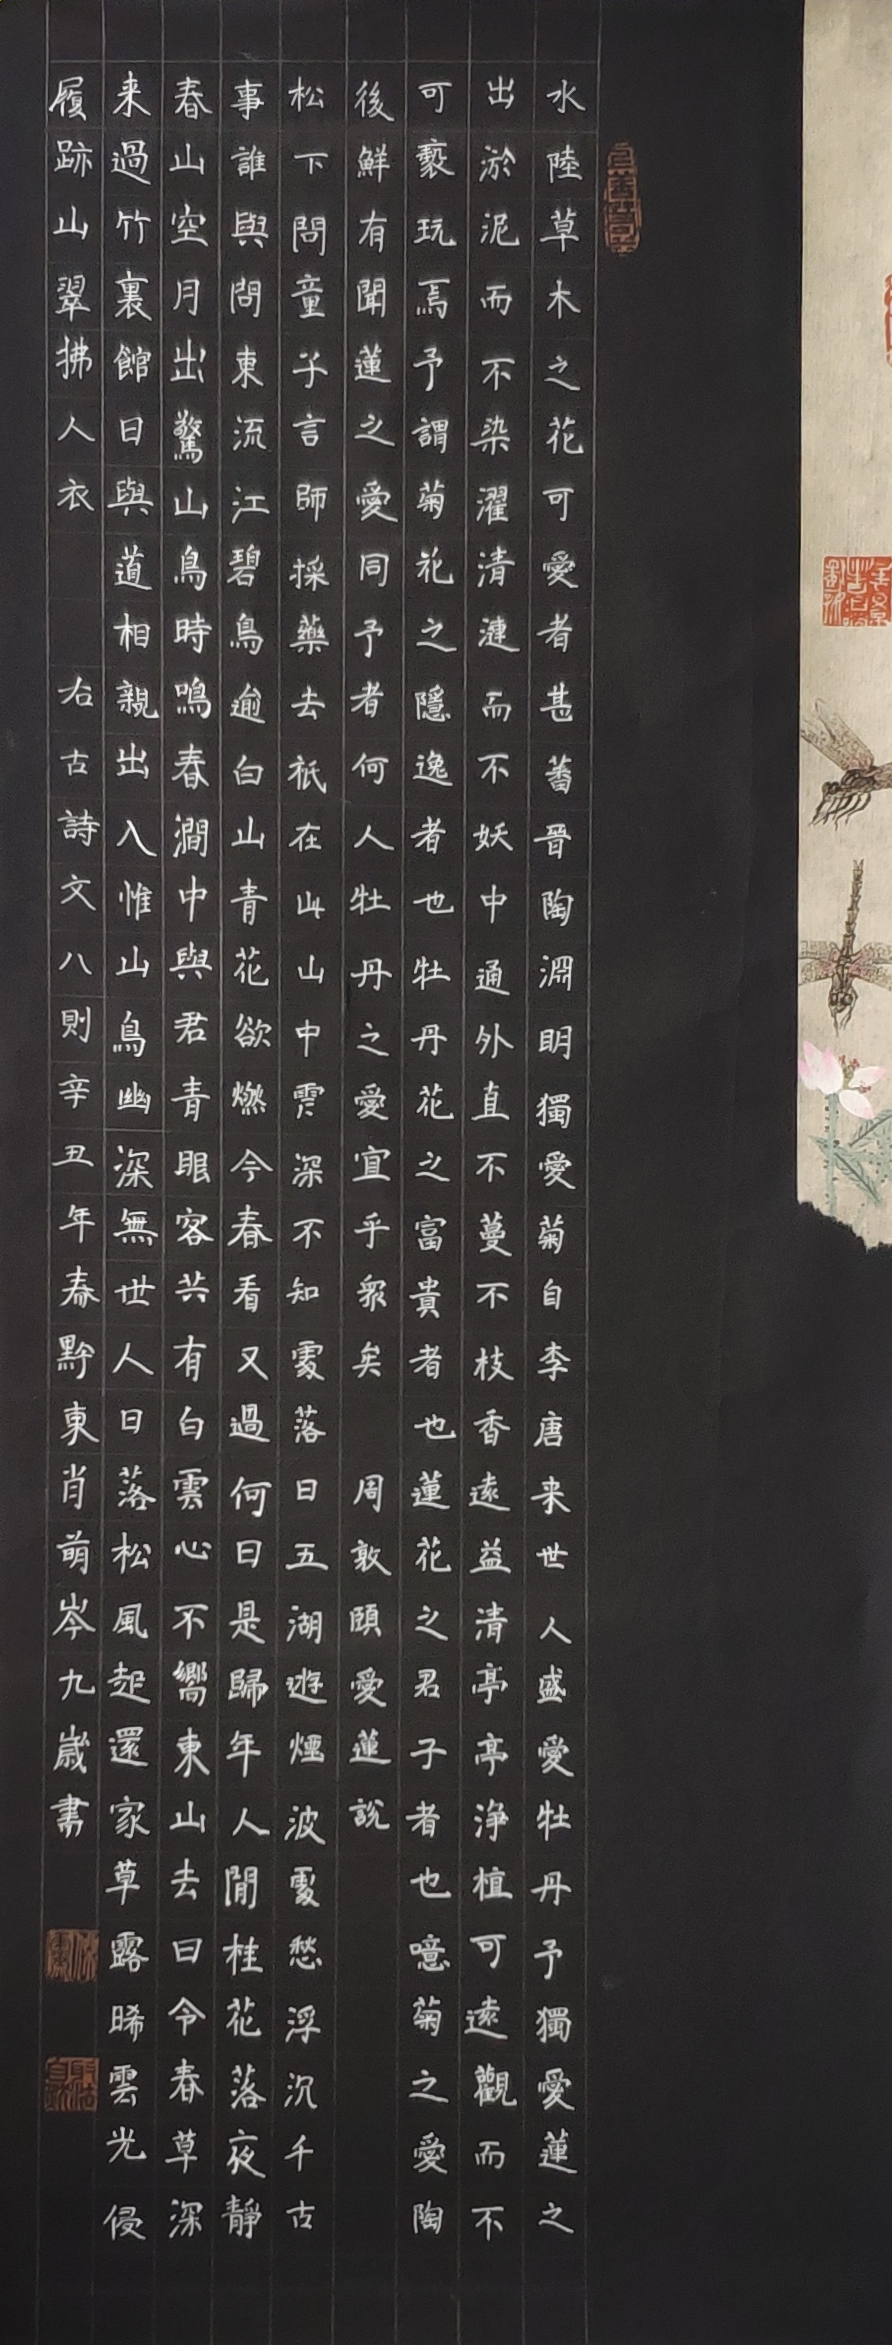 水陸草木之花可愛者甚蕃晉陶淵明獨愛菊自李唐来世人盛愛牡丹予獨愛蓮之
出淤泥而不染濯清漣而不妖中通外直不蔓不枝香遠益清亭亭浄植可遠觀而不
可褻玩焉予謂菊花之隱逸者也牡丹花之富貴者也蓮花之君子者也噫菊之愛陶
後鮮有聞蓮之愛同予者何人牡丹之愛宜乎衆矣 周敦頤愛蓮說
松下問童子言師採藥去祇在此山中雲深不知處落日五湖遊煙波處愁浮沉千古
事誰與問東流江碧鳥逾白山青花欲燃今春看又過何日是歸年人閒桂花落夜靜
春山空月出驚山鳥時鳴春澗中與君青眼客共有白雲心不嚮東山去日令春草深
来過竹裏館日與道相親出入惟山鳥幽深無世人日落松風起還家草露晞雲光侵
履跡山翠拂人衣 右古詩文八則辛丑年春黔東肖萌岑九歲書